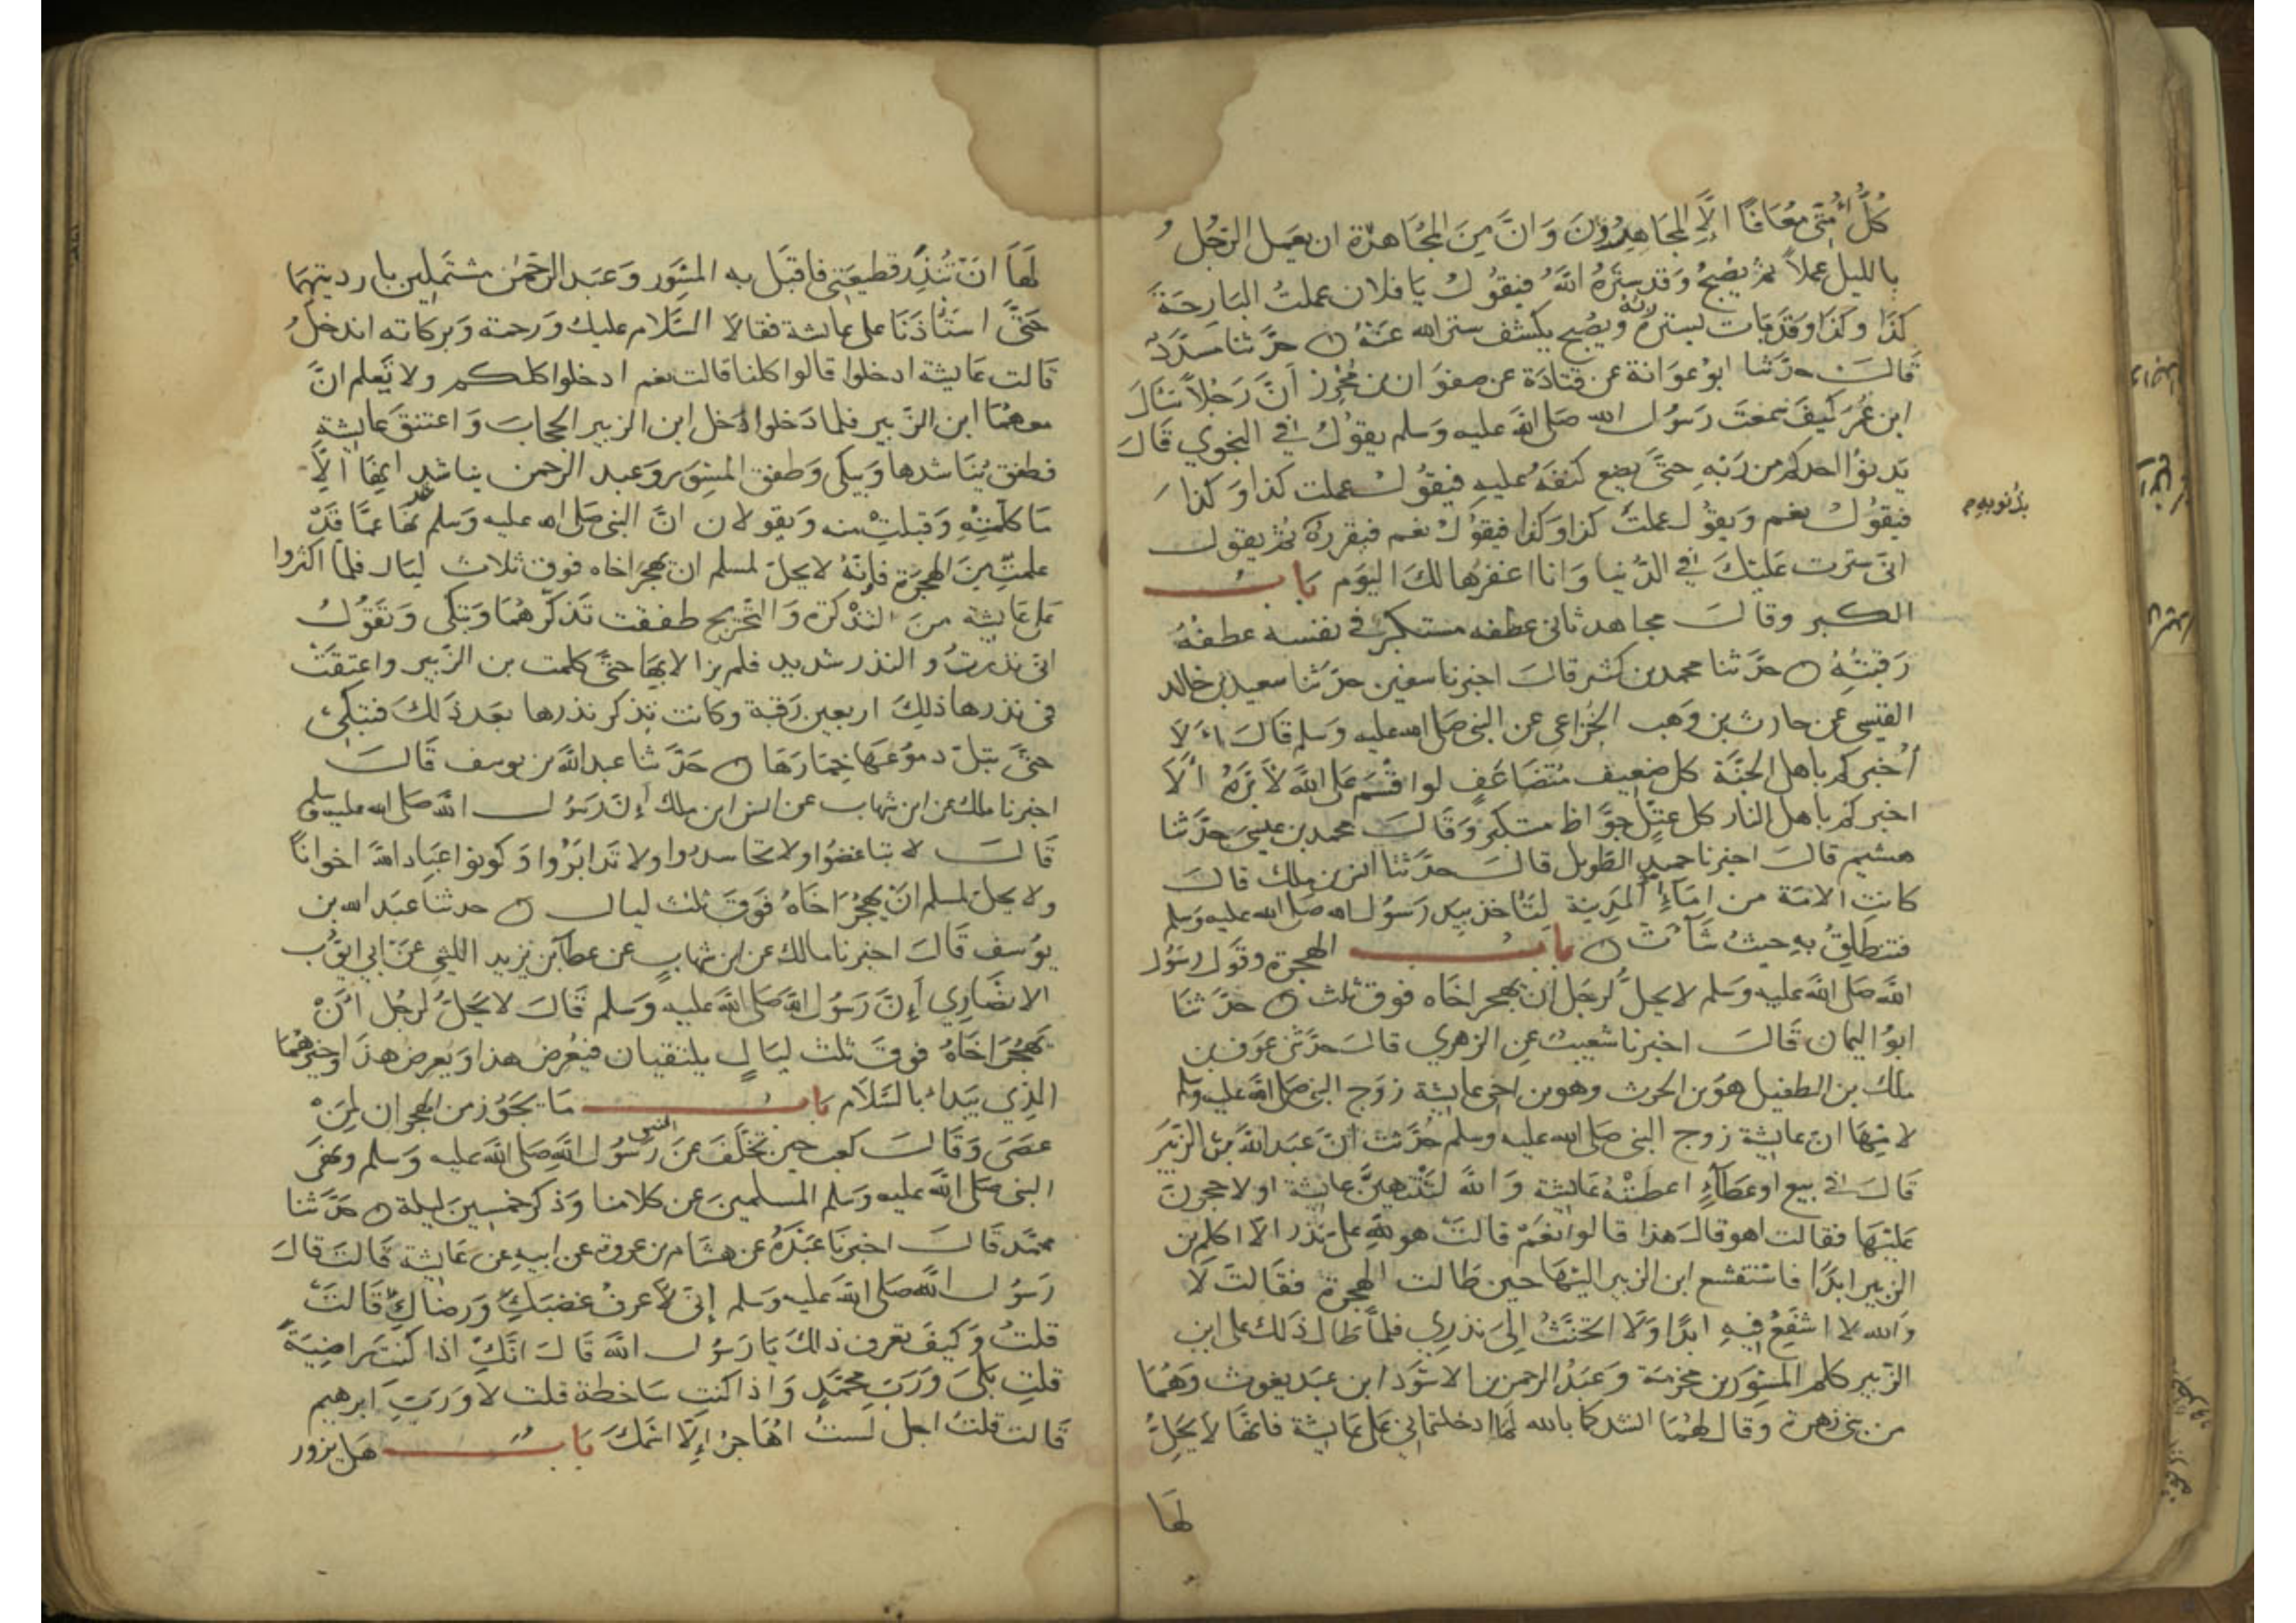 كُلُّ أُمَّتِي مُعَافًا اِلَّا المجَاهِرُونَ وَانَّ مِنَ المجُاهرَة ان يعَمل الرَّجُل
بالليل عملاً ثم يصْبحُ وَقد سترَهُ اللهُ فيقوُل يَا فلان عملتُ البَارحَةَ
كذَا وكذَا وَقَد بَات يسترهُ ربُّهُ ويصْبح يكشف ستر الله عَنْهُ ه حدَّثنا مسدَّدٌ
قَالَ حدَّثنا ابوُ عوَانة عن قتادَة عن صفوَان بن مُحْرِز اَنَّ رَجُلاً سَالَ
ابن عُمَرَ كَيفَ سَمعتَ رَسُول الله صَلى الله عليه وَسلم يقوُلُ في النجوي قالَ
يَدنوُا احدكم من رَبّه حتَّى يضع كنفَهُ عليهِ فيقوُل عملت كذا وَكذا
فيقوُل نعَم وَيقوُل عملتَ كذا وَكذا فيقوُلُ نعَم فيقررُهُ ثم يقول
بذُنوبهِ م
انى سَترت عَليْكَ في الدُّنيا وَانا اغفرُها لكَ اليَوم بَابُ
الكبر وقالَ مجاهد ثانىَ عطفه مستكبر في نفسه عطفهُ
رَقبتُهُ ه حدَّثنا محمد بن كثير قالَ اخبرنا سفين حدَّثنا سعيد بن خالد
القيسي عن حارث بن وَهب الخُزاعي عن النبي صَلى الله عليه وَسلم قَالَ اَلَا
أُخبركم باهل الجنَّة كل ضعِيف مُتضَاعَفٍ لو اقسَم عَلى اللهَ لأَبَرَّهُ اَلَا
اخبركم باهل النار كل عتلّ جوَّاظ مستكبر وَقَالَ محمد بن عيسى حدَّثنا
هشيم قالَ اخبرنا حميد الطَّويل قالَ حدَّثنا انس بن ملك قالَ
كانت الامَة من امَاءِ المَدِينة لتَأخذ بيَد رَسوُل الله صَلى الله عليه وَسَلم
فتنطلِقُ بهِ حيثُ شَآءَت ه بَابُ الهجرَة وقوَل رَسُول
الله صَلى الله عليه وَسلم لا يحلُّ لرجَل ان يهجر اخَاه فوق ثلث ه حدَّثنا
ابوُ اليمان قَالَ اخبرنا شعَيبٌ عن الزهري قالَ حدَّثني عوَف بن
ملك بن الطفيل هوَ بن الحرث وهو بن اخى عايشة زوَج النبي صَلى الله عليه وسلم
لامّهَا ان عايشة زوج النبي صَلى الله عليه وسلم حُدّثت انَّ عَبدَ اللهَ بن الزبَير
قَالَ في بيع او عَطآءٍ اعطَتْهُ عَايشة وَاللهَ لتَنْتَهيَنَّ عايشة او لاحجرنَ
عَليْهَا فقالت اهو قالَ هَذا قالوا نعَمْ قالتْ هو للهِ على نَذْر الَّا اكلم بن
الزبير ابَدًا فاسْتشفع ابن الزبير اليْهَا حين طَالت الهجرة فقَالتَ لَا
وَالله لا اشفعُ فيهِ ابدًا وَلَا اتحنّثُ اِلىَ نذرِي فلمَّا طَال ذَلك على ابن
الزّبير كلم المسوَر بن مخرَمَة وَعَبدَ الرحمن بن الاسوَد ابن عَبد يغوث وَهُمَا
من بنى زهرة وقال لهُمَا انشدكما بالله لمَا ادخلتماني عَلى عَايشة فانهَا لا يَحلُّ
لهَا
لَهَا انْ تَنْذِرَ قطيعَتى فاقبَل به المسْوَر وَعَبد الرَّحمن مشتَملِين بارديتهمَا
حَتَّى استَاذنَا على عايشة فقالَا السَّلام عليك وَرَحمة وَبرَكاته اندخلُ
قالت عَايشة ادخلوا قالوا كلنا قالت نعم ادخلوا كلكم ولا تَعلم انَّ
معهُمَا ابن الزَّبير فلما دَخلوا دَخل ابن الزبير الحجابَ وَاعتنق عايشة
فطفق يُناشدها وَيبكى وَطفق المسوَر وَعبد الرحمن يناشدانِهَا اِلَّا
مَا كلَّمَتْهِ وَقبلتْ منه وَيقولان انَّ النبي صَلى الله عليه وَسلم نَهَا عمَّا قَدْ
قد
علمتِ مِنَ الهجرَة فإنَّهُ لا يحلّ لمسلم ان يهجرَ اخاه فوق ثلاث ليَال فلمَّا اكثروا
عَلى عَايشة منَ التذْكرَة وَالتَّحْريج طفقت تَذكّرهُمَا وَتبَكى وَتقوُلُ
انى نذرتُ والنذر شديد فلم يزالا بهَا حتىَّ كلمت بن الزَّبير واعتقت
في نذرها ذلكَ اربعين رَقبَة وكانت تذكر نذرها بعَد ذَلكَ فتبكىُ
حتىَّ تبلّ دموعُهَا خِمَارَهَا ه حَدَّثنا عبد اللهَ بن يوسف قَالَ
اخبرنا ملك عن ابن شهاب عن انس ابن ملك أنَّ رَسُول اللهَ صَلى الله عليه وسلم
قَالَ لا تباغضُوا ولا تحَاسَدوا ولا تَدَابَرُوا وَكونوا عبَاد اللهَ اخوانًا
ولا يحلّ لمسلم انْ يهجُرَ اخَاهُ فوَقَ ثلث ليال ه حدثنا عَبد الله بن
يوُسف قَالَ اخبرنا مالك عن ابن شهابٍ عن عطآء بن يزيد الليثي عَنْ ابي ايوُّب
الانصَارِي إنَّ رَسُول الله صَلى اللهَ عليه وَسلم قَالَ لا يَحَلُّ لرجُل اَنْ
يهْجُرَ اخَاهُ فوقَ ثلث ليَالٍ يلتقيان فيُعْرضُ هذا وَيُعرِض هذَا وخيرُهُمَا
الذِي يَبدَاءُ بالسَّلَام بَابُ مَا يجَوُز من الهجرَان لِمَنْ
عصَى وَقَالَ كعب حين تخَلَّفَ عَن رَسُول اللهِ صَلى اللهَ عليه وَسَلم ونَهَى
النبي
النبي صَلى اللهَ عليه وَسَلم المسلمينَ عن كلامنا وَذكر خمَسين ليلة ه حَدَّثنا
محمَّد قَالَ اخبرنَا عَبْدَةُ عن هشَام بن عروة عن ابيهِ عن عَايشة قالتَ قالَ
رَسُول اللهَ صَلى اللهَ عَليه وَسلم إنى لَأَعرفُ غضبَكِ وَرضَاكِ قَالتْ
قلتُ وَكيفَ تعرف ذاكَ يَا رَسُول اللهَ قَالَ انَّكِ اذا كنتِ رَاضيَةً
قلتِ بَلىَ وَرَبِّ محمَّدٍ وَاذا كنتِ سَاخطَة قلت لَا وَرَبِّ ابرهيم
قَالت قلتُ اجل لستُ اهَاجرُ إلَّا اسْمكَ بَابُ هَل يزور